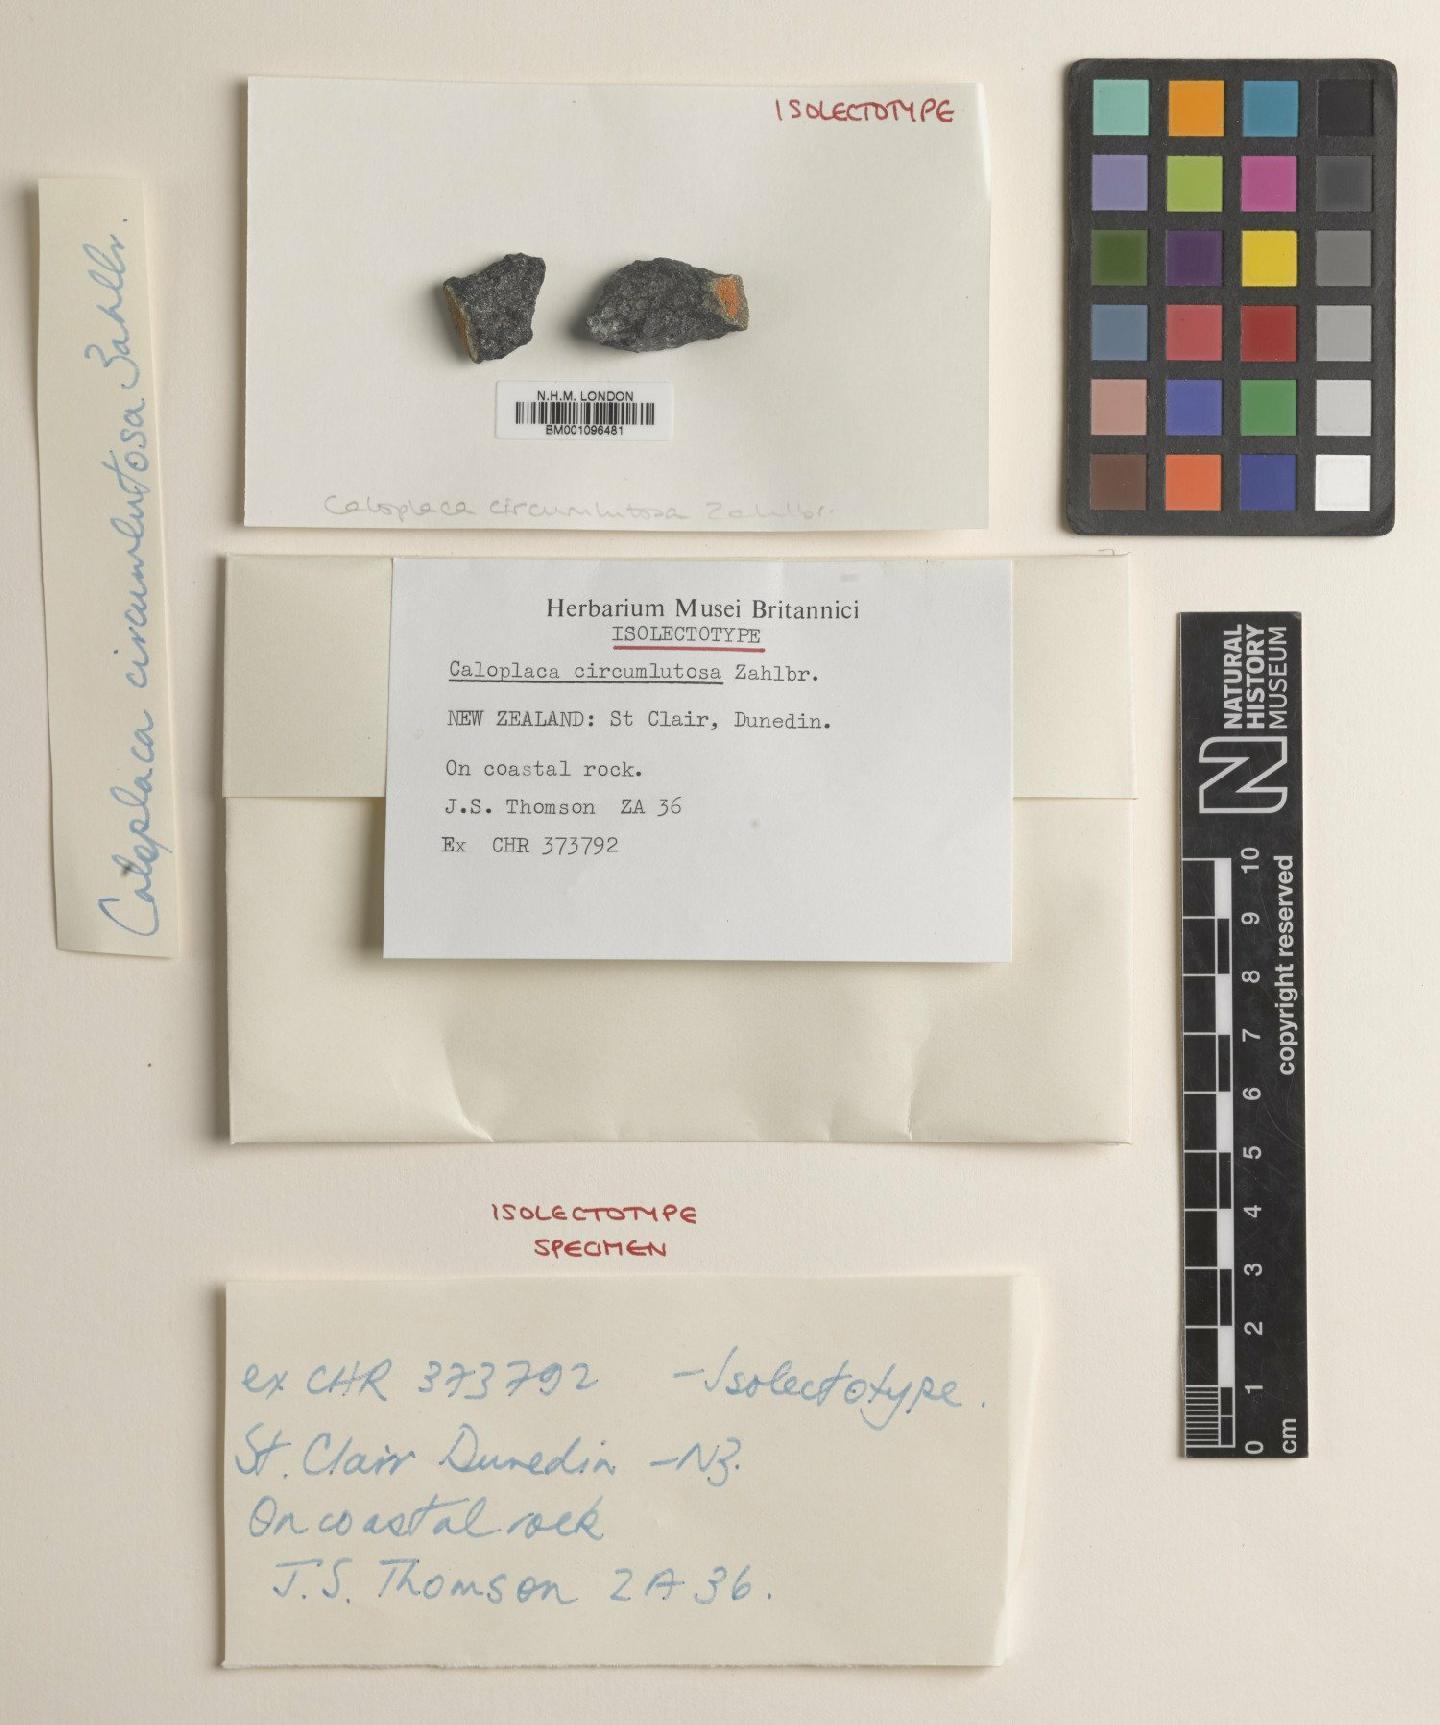 ISOLECTOTYPE
N.H.M. LONDON
BM001096481
Caloplaca circumlutosa Zahlbr.
Caloplaca circumlutosa Zahlbr.
Herbarium Musei Britannici
ISOLECTOTYPE
Caloplaca circumlutosa Zahlbr.
NEW ZEALAND: St Clair, Dunedin.
On coastal rock.
J.S. Thomson ZA 36
Ex CHR 373792
ISOLECTOTYPE
SPECIMEN
ex CHR 373792 - Isolectotype.
St. Clair Dunedin - NZ.
On coastal rock
J.S. Thomson ZA 36.
NATURAL
HISTORY
MUSEUM
copyright reserved
10
9
8
7
6
5
4
3
2
1
0
cm